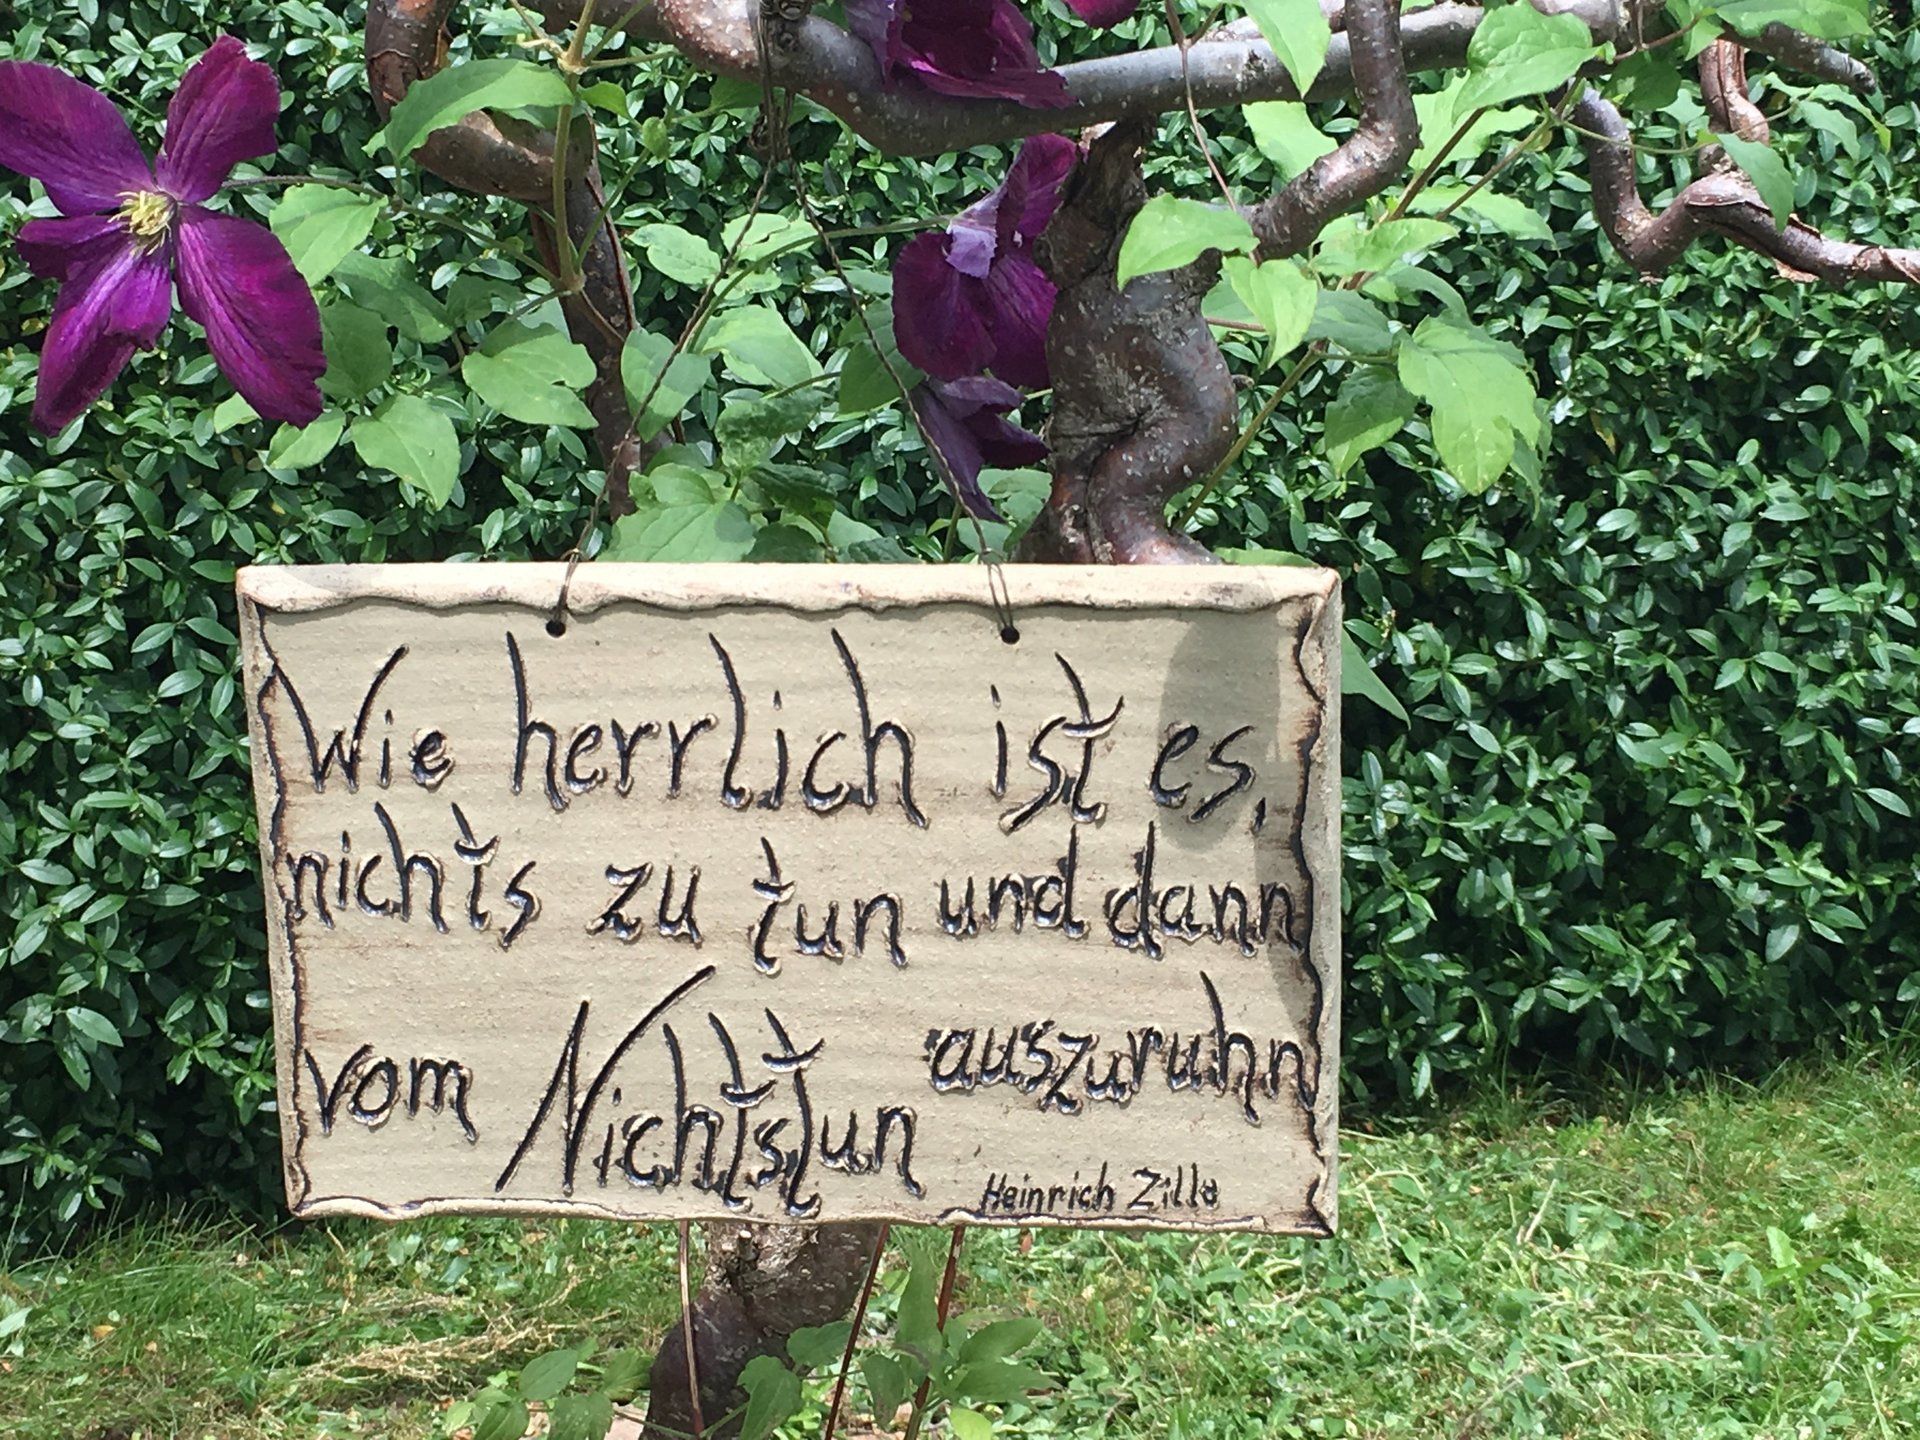 Wie herrlich ist es,
nichts zu tun und dann
vom Nichtstun auszuruhn
Heinrich Zille